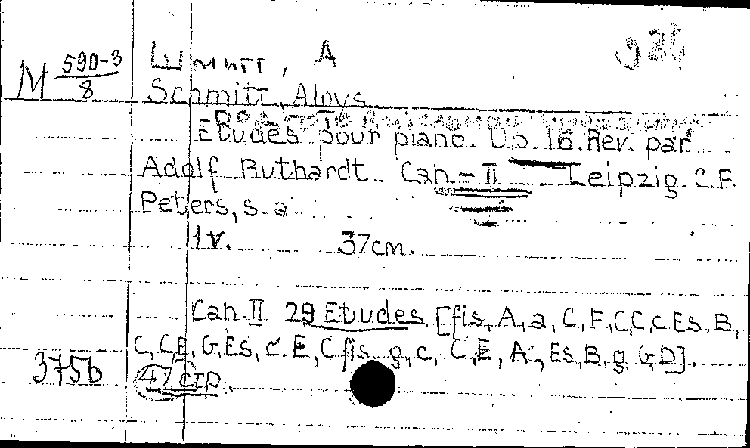 М 590-3
8
Шмитт, А
Schmitt, Aloys
Etudes pour piano. Op. 16. Rev. par
Adolf Ruthardt. Cah. - II Leipzig. C.F.
Peters, s. a.
1 v. 37cm.
Cah. II 29 Etudes [fis, A, a, C, F, C, C, c, Es, B,
C, C, E, G, Es, c. E, C, fis, g, c, C, E, A, Es, B, g, G, D].
375b
47 стр.